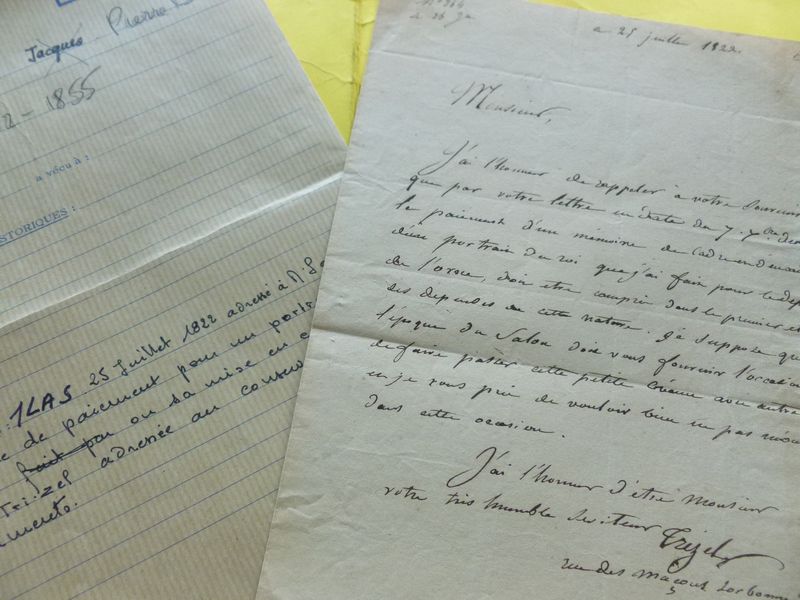 Jacques Pierre
2 - 1855
a vécu à :
ISTORIQUES :
1LAS 25 Juillet 1822 adressé à M.
de paiement pour un
fait par ou sa mise en
Trézel adressée au
N° 964
a 25 juillet 1822.
Monsieur,
J'ai l'honneur de rappeler à votre souvenir
que par votre lettre en date du 7.
le paiement d'un mémoire de
d'un portrait du roi que j'ai fait pour le
de l'orne, doit etre compris dans le premier
des depenses de cette nature. Je suppose que
l'époque du Salon doit vous fournir l'occasion
de faire passer cette petite créance avec
et je vous prie de vouloir bien ne pas
dans cette occasion.
J'ai l'honneur d'etre Monsieur
votre très humble Serviteur Trézel
rue des maçons Sorbonne